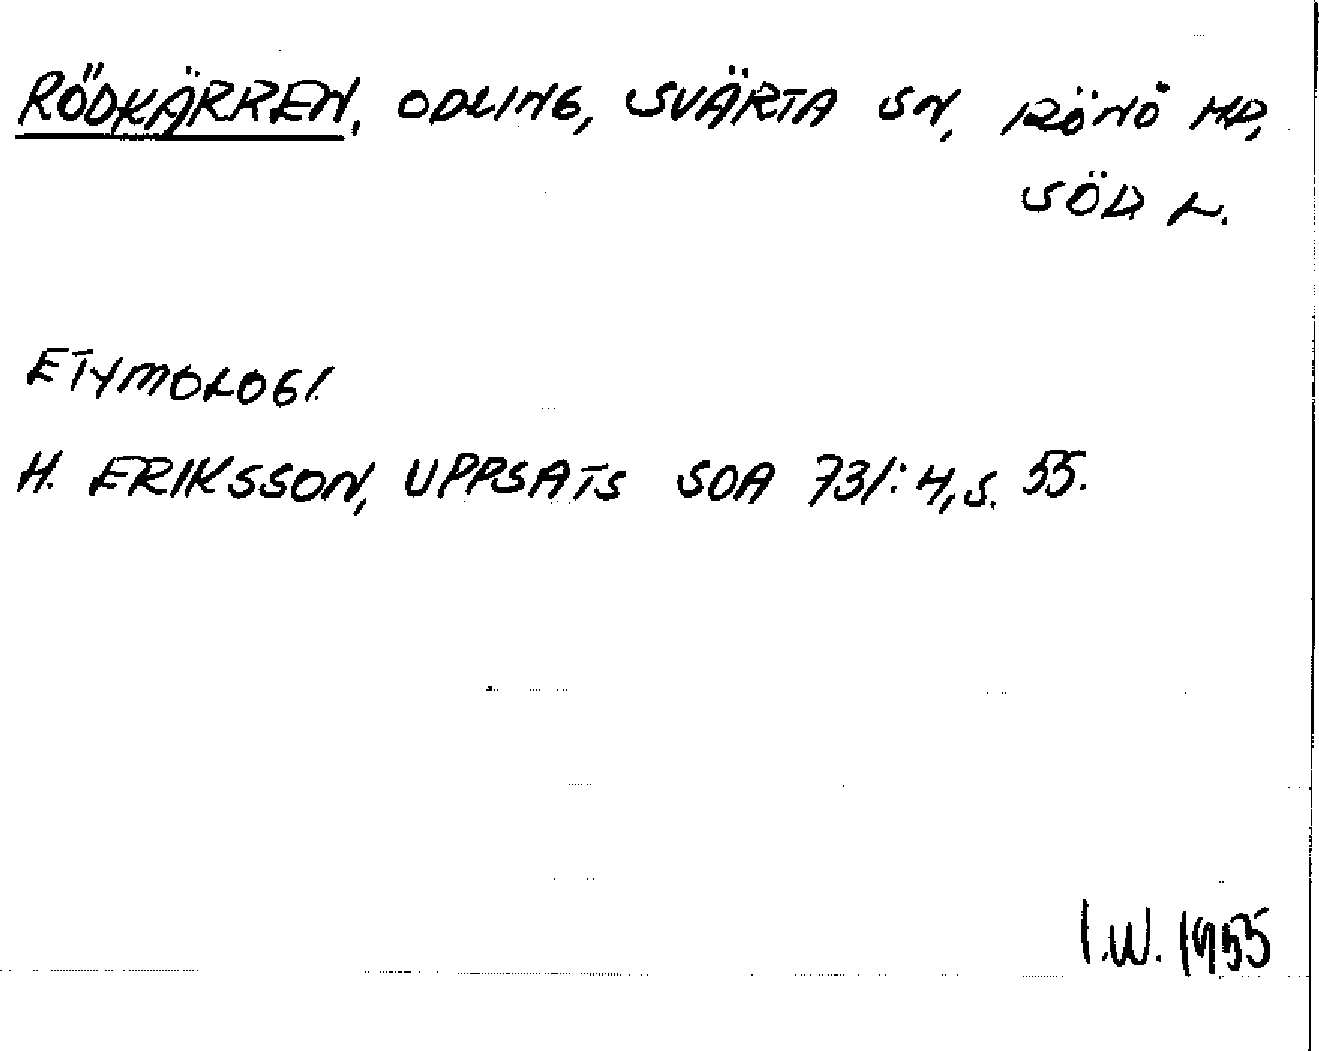 RÖDKÄRREN, ODLING, SVÄRTA SN, RÖNÖ HD,
SÖD L.
ETYMOLOGI.
H. ERIKSSON, UPPSATS SOA 731:4, S. 55.
I.W. 1955